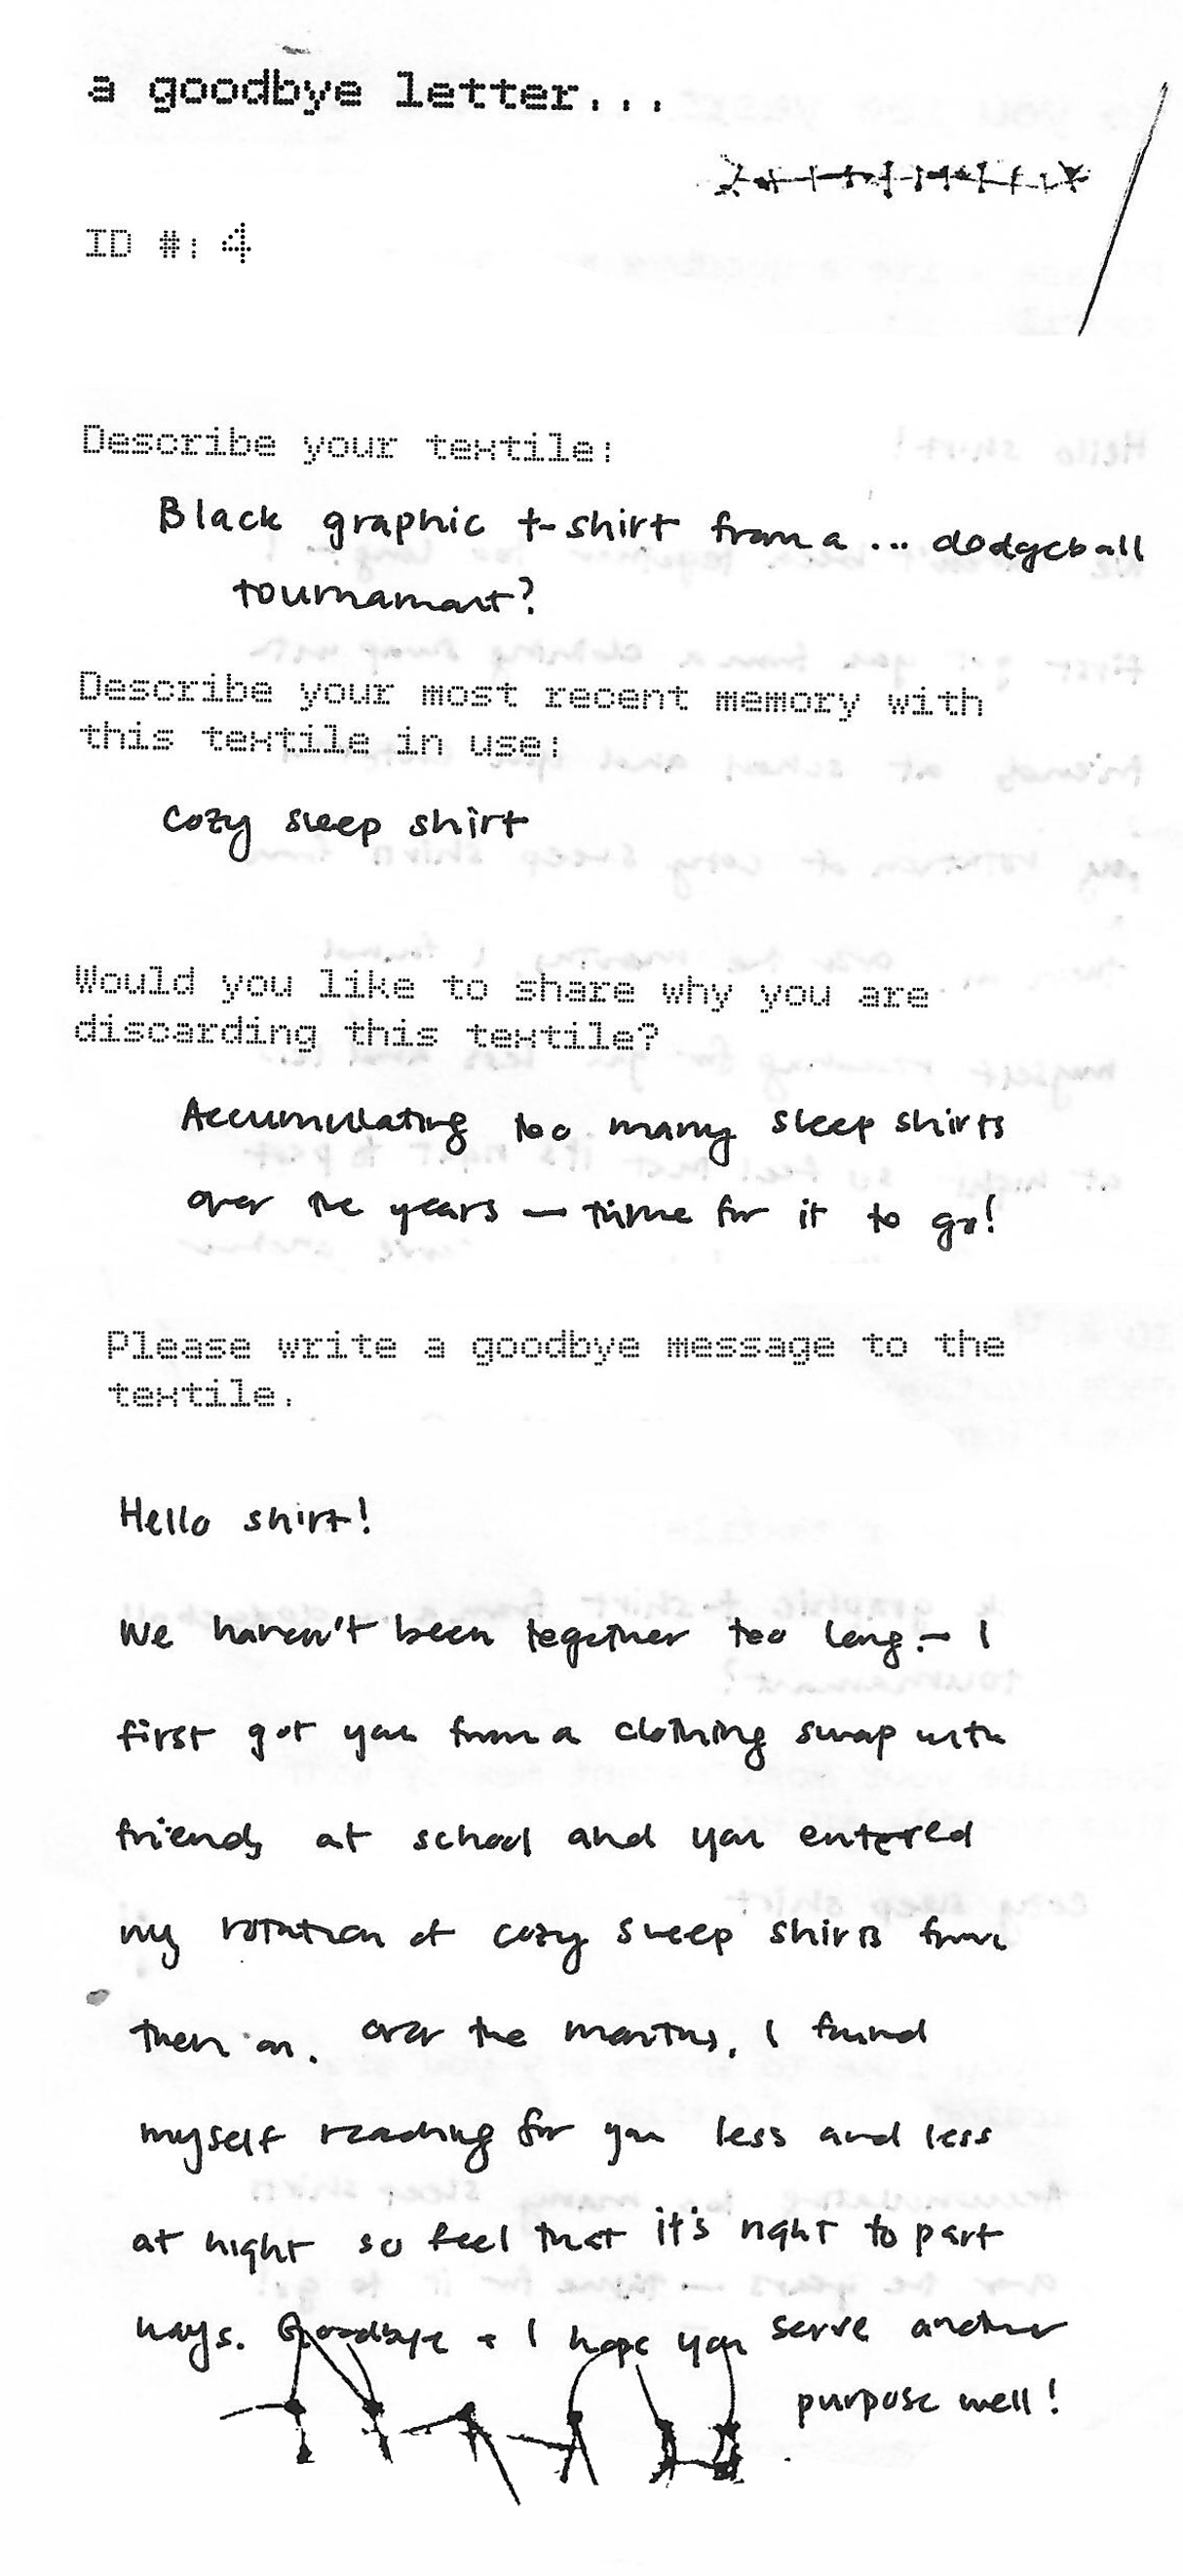 a goodbye letter...
ID #: 4
Describe your textile:
Black graphic t-shirt from a ... dodgeball
tournamant?
Describe your most recent memory with
this textile in use:
Cozy sleep shirt
Would you like to share why you are
discarding this textile?
Accumulating too many sleep shirts
over the years — time for it to go!
Please write a goodbye message to the
textile.
Hello shirt!
We haven't been together too long — I
first got you from a clothing swap with
friends at school and you entered
my rotation of cozy sleep shirts from
then on. Over the months, I found
myself reaching for you less and less
at night so feel that it's right to part
ways. Goodbye + I hope you serve another
purpose well!